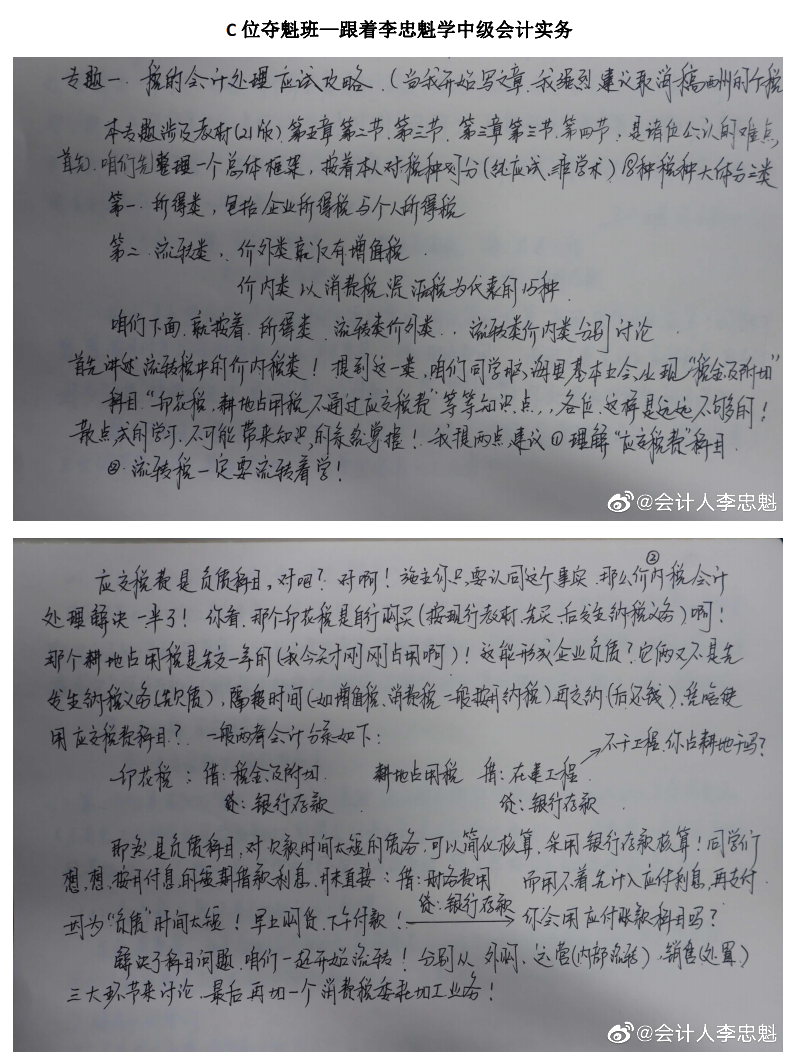 C 位夺魁班—跟着李忠魁学中级会计实务
专题一、税的会计处理应试攻略.(当我开始写文章.我强烈建议取消稿酬的个税
本专题涉及教材(21版)第五章第二节.第三节.第三章第三节.第四节,是诸位公认的难点
首先.咱们先整理一个总体框架,按着本人对税种划分(纯应试.非学术)18种税种大体分三类
第一.所得类,包括企业所得税与个人所得税
第二.流转类,价外类就仅有增值税
价内类以消费税、资源税为代表的15种.
咱们下面.就按着.所得类.流转类价外类..流转类价内类分别讨论
首先讲述流转税中的价内税类!提到这一类,咱们同学脑海里基本上会出现"税金及附加"
科目."印花税,耕地占用税不通过应交税费"等等知识点,,各位.这样是远远不够的!
散点式的学习.不可能带来知识的系统掌握!我提两点建议①理解"应交税费"科目
②.流转税一定要流转着学!
@会计人李忠魁
应交税费是负债科目,对吧?对啊!施主你只要认同这个事实.那么价内税会计②
处理解决一半了!你看.那个印花税是自行购买(按现行教材.先买.后发生纳税义务)啊!
那个耕地占用税是先交一年的(我今天才刚刚占用啊)!这能形成企业负债?它俩又不是先
发生纳税义务(先欠债),隔段时间(如增值税.消费税一般按月纳税)再交纳(后还钱).凭啥使
用应交税费科目?.一般两者会计分录如下:
不干工程.你占耕地干吗?
印花税:借:税金及附加 耕地占用税 借:在建工程
贷:银行存款 贷:银行存款.
既然是负债科目,对欠款时间太短的债务.可以简化核算.采用银行存款核算!同学们
想,想.按月付息的短期借款利息,月末直接:借:财务费用 而用不着先计入应付利息,再支付.
贷:银行存款
因为"负债"时间太短!早上购货.下午付款! 你会用应付账款科目吗?
解决了科目问题.咱们一起开始流转!分别从外购,运营(内部流转),销售(处置)
三大环节来讨论.最后再加一个消费税委托加工业务!
@会计人李忠魁